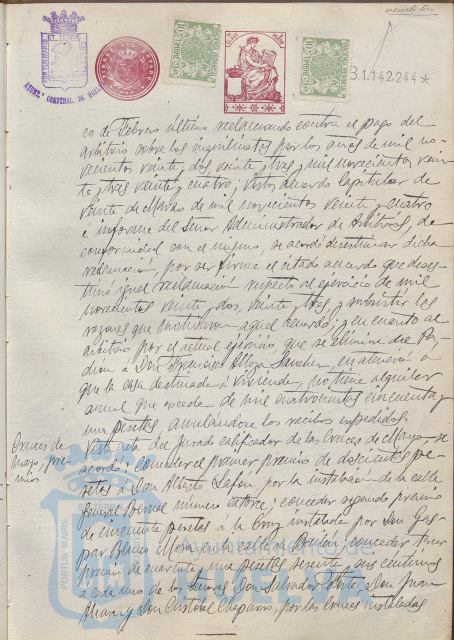 B.1.142.244*
co de Febrero último reclamando contra el pago del
arbitrio sobre los inquilinatos por los años de mil no-
vecientos veinte y dos, veinte y tres y mil novecientos vein-
te y tres veinte y cuatro; visto acuerdo capitular de
veinte de Marzo de mil novecientos veinte y cuatro
é informe del Señor Administrador de Arbitrios, de
conformidad con el mismo, se acordó desestimar dicha
reclamación, por ser firme el citado acuerdo que deses-
timó igual reclamación respecto al ejercicio de mil
novecientos veinte y dos, veinte y tres y subsistir las
razones que motivaron aquel acuerdo; y en cuanto al
arbitrio por el actual ejercicio, que se elimine del Pa-
dron a Don Francisco Sanchez, en atención a
que la casa destinada a vivienda, no tiene alquiler
anual que exceda de mil cuatrocientas cincuenta y
una pesetas, anulándose los recibos expedidos.
Cruces de
Mayo, pre-
mios
Vista acta del Jurado calificador de las Cruces de Mayo, se
acordó: conceder el primer premio de doscientas pe-
setas a Don Alberto Lafon, por la instalada en la calle
General Bernal número catorce; conceder segundo premio
de cincuenta pesetas a la Cruz instalada por Don Gas-
par Blanco Mora en la calle de; conceder tercer
premio de cuarenta y una pesetas sesenta y seis centimos
a cada uno de los Señores Don Salvador, Don Juan
Alvarez y Don Cristóbal Chaparro, por las cruces instaladas
PORTUS MARIS
Ayuntamiento de
HUELVA